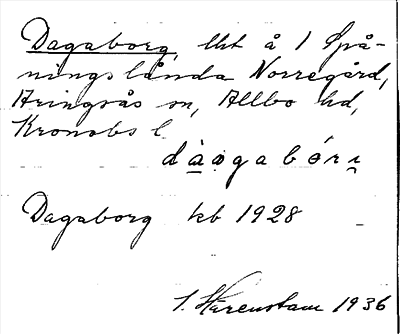 Dagaborg, lht å 1 Spå-
ningslånda Norregård,
Aringsås sn, Allbo hd,
Kronobs l
dàogabórı
Dagaborg kb 1928
I. Härenstam 1936